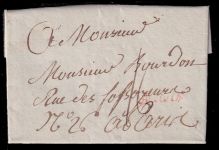 A Monsieur
Monsieur Bourdon
Rue des
N° 26 à Paris